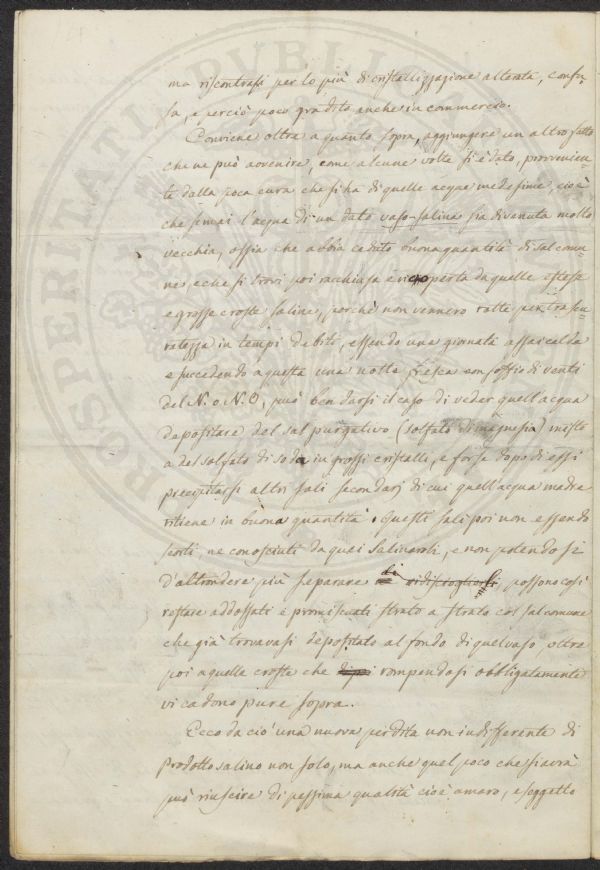 ma riscontrasi per lo più di cristallizzazione alterata, confu-
sa, e perciò poco gradito anche in commercio.
Conviene oltre a quanto sopra, aggiungere un altro fatto
che ne può avvenire, come alcune volte si è dato, provenien-
te dalla poca cura che si ha di quelle acque medesime, cioè
che se mai l'acqua di un dato vaso-salina sia divenuta molto
vecchia, ossia che abbia ceduto buona quantità di sal comu-
ne, e che si trovi poi racchiusa e ricoperta da quelle estese
e grosse croste saline, perchè non vennero rotte per trascu-
ratezza in tempi debiti, essendo una giornata assai calda
e succedendo a questa una notte fresca con soffio di venti
del N. o N.O, può ben darsi il caso di veder quell'acqua
depositare del sal purgativo (solfato di magnesia) misto
a del solfato di soda in grossi cristalli, e forse dopo di essi
precipitarsi altri sali secondarj di cui quell'acqua madre
ritiene in buona quantità. Questi sali poi non essendo
scorti, ne conosciuti da quei Salinaroli, e non potendosi
d'altronde più separare di ridiscioglierli, possono così
restare addossati e promiscuati strato a strato col sal comune
che già trovavasi depositato al fondo di quel vaso, oltre
poi a quelle croste che rompendosi obbligatamente
vi cadono pure sopra.
Ecco da ciò una nuova perdita non indifferente di
prodotto salino non solo, ma anche quel poco che si avrà
può riuscire di pessima qualità cioè amaro, e soggetto
PROSPERITATI PVBLICAE